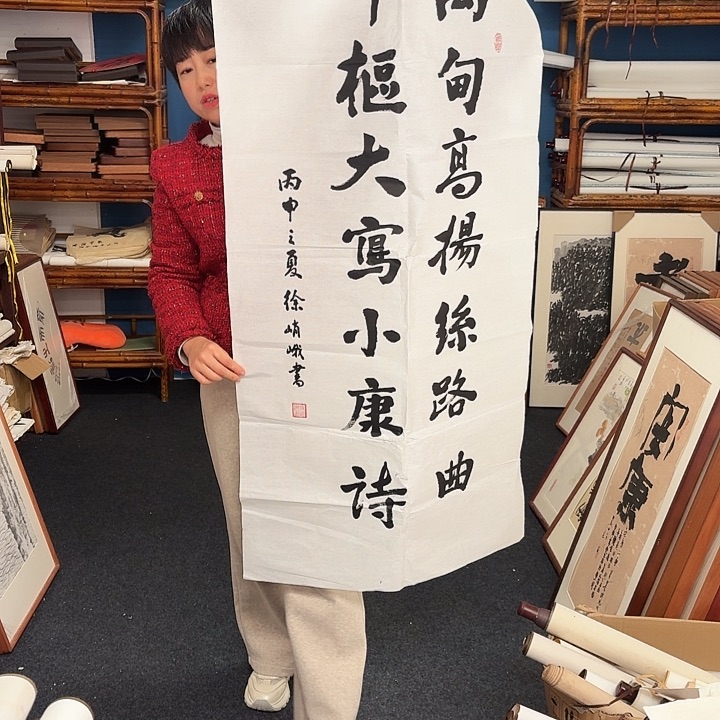 禹甸高揚絲路曲
樞大寫小康詩
丙申之夏徐峭峨書